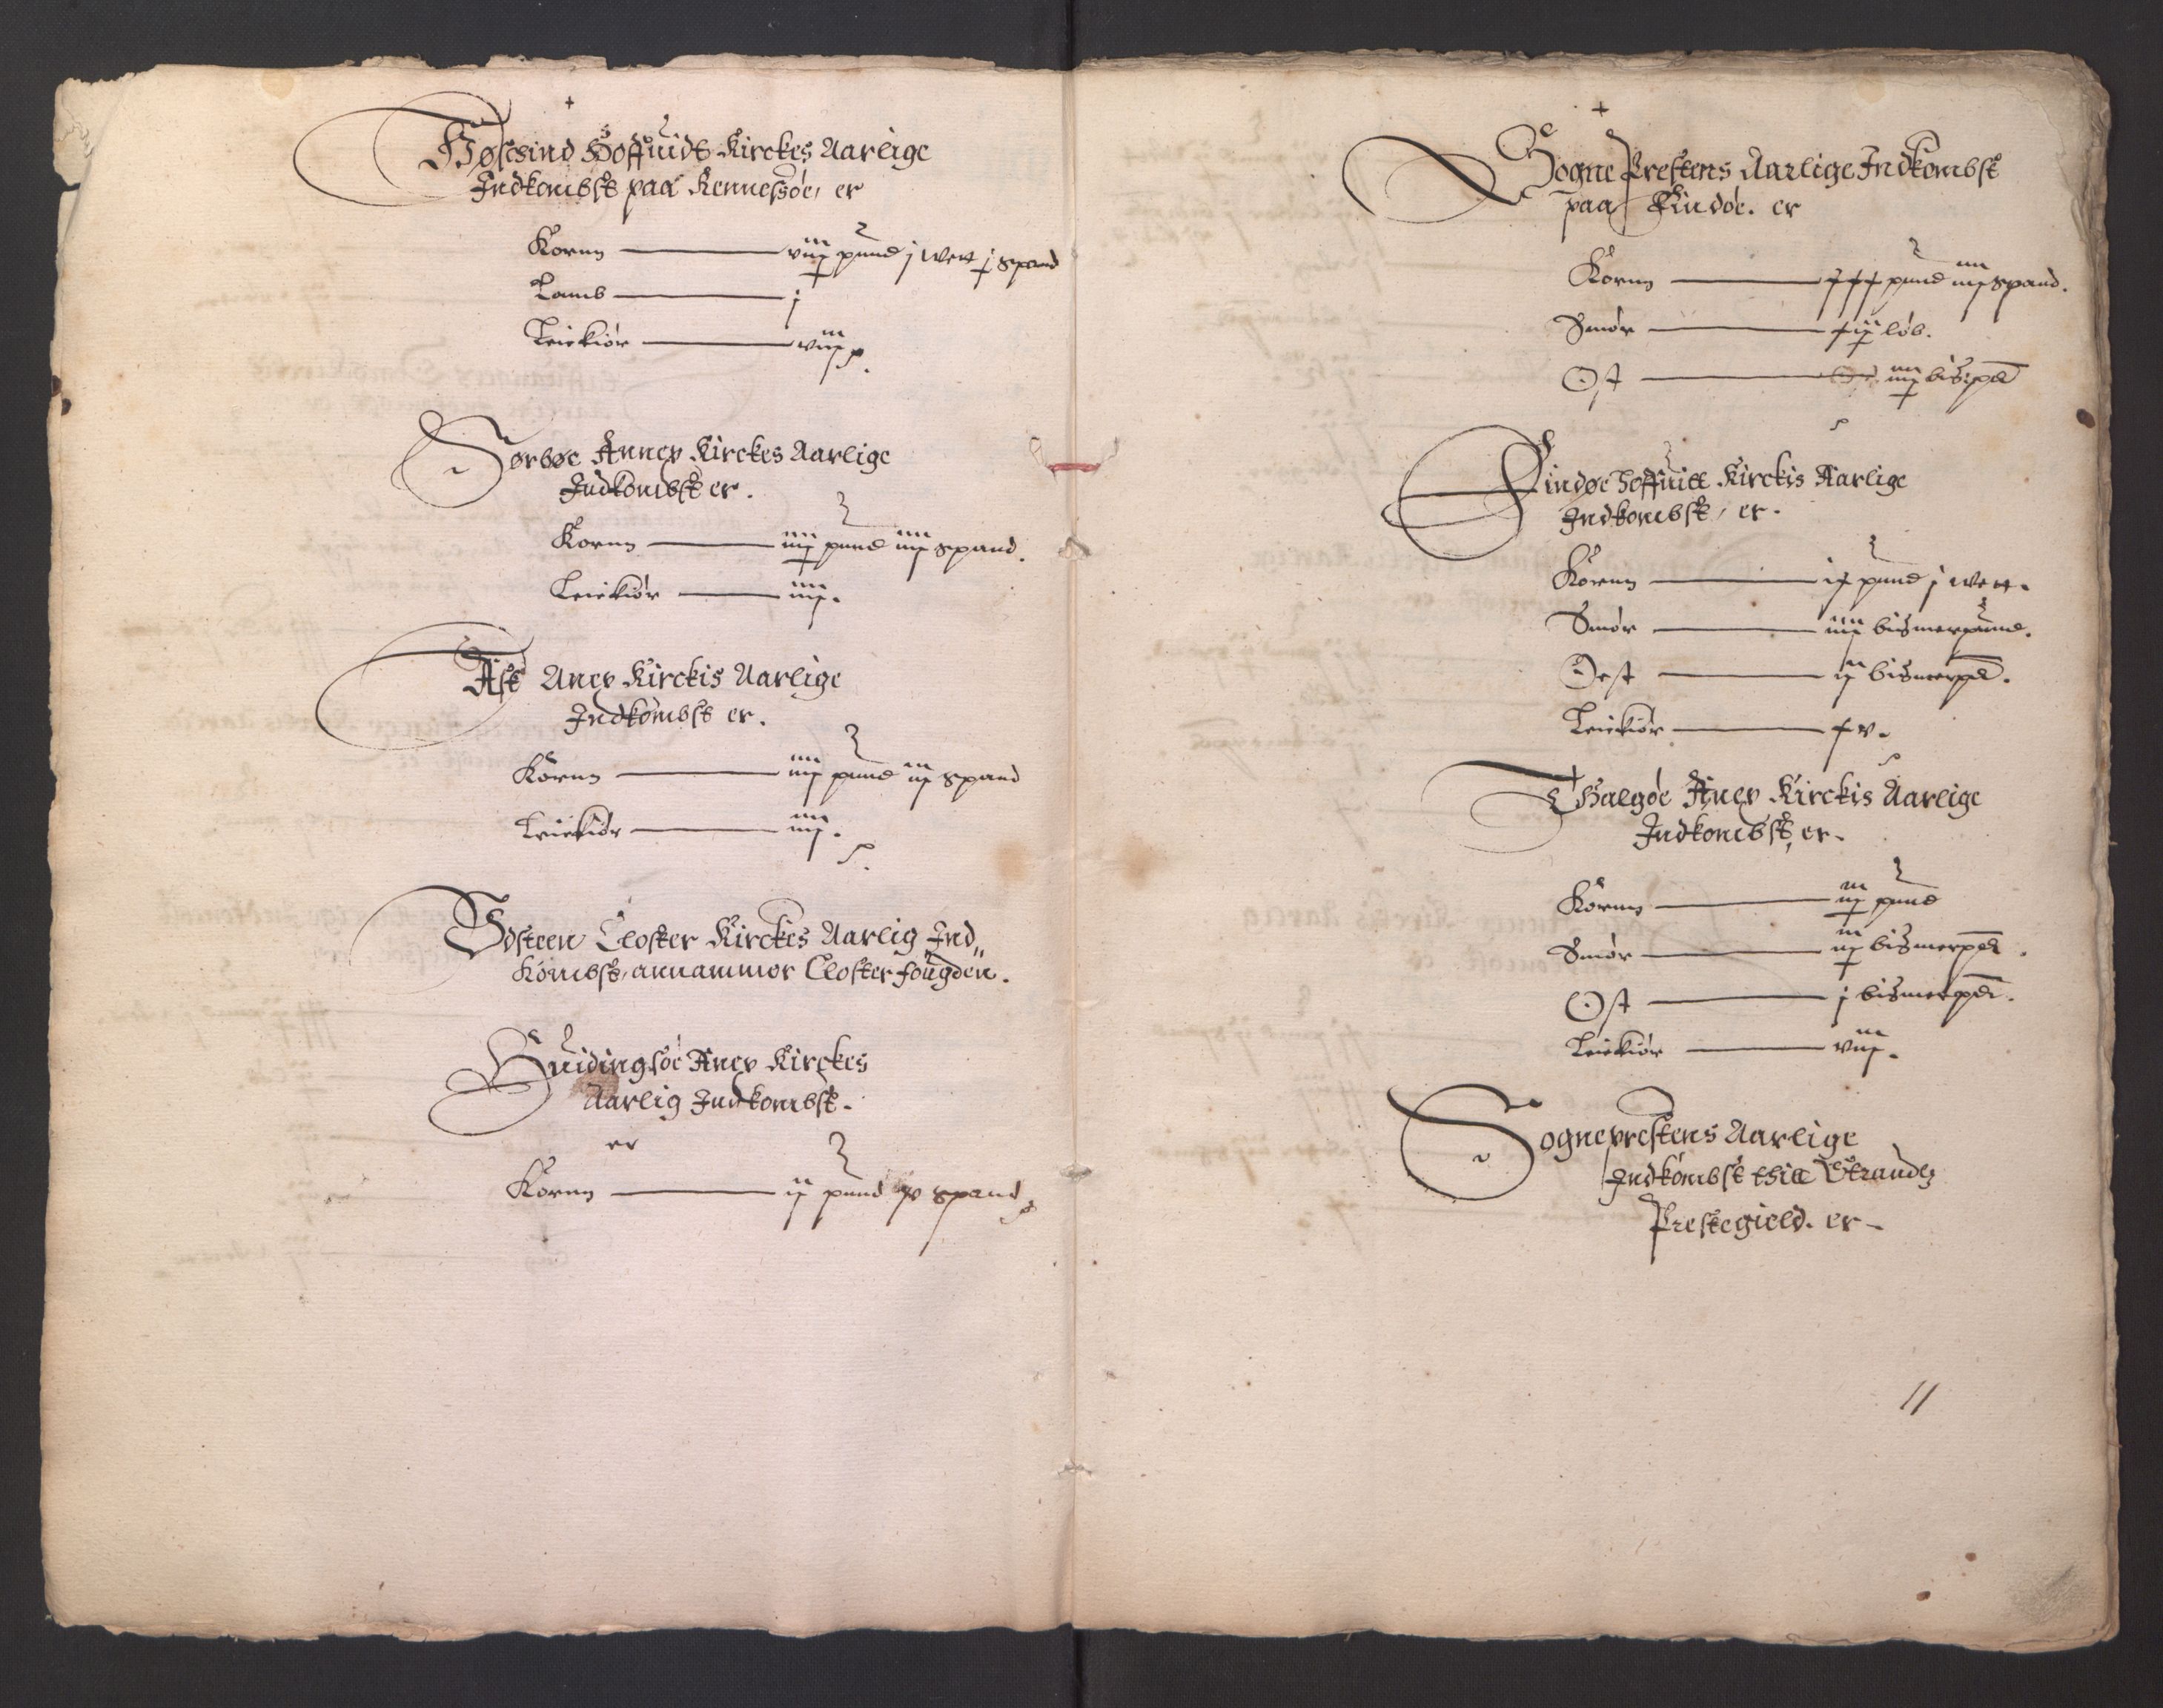 +
Høschind Hoffuids Kirckes Aarlige
Indkombst paa Rennessøe, er
Kornn viij pund j wett j spand
Lamb j
Leiekiør viij
Sørbøe Annex Kirckes Aarlige
Indkombst er.
Kornn iiij pund iiij spand.
Leiekiør iiij.
Ask Anex Kirckis Aarlige
Indkombst er.
Kornn iiij pund iij spand
Leiekiør iiij.
Vdsteen Closter Kirckes Aarlig Ind„
kombst, annammer Closter fougden.
Huidingsøe Anex Kirckes
Aarlig Indkombst.
er
Kornn ij pund spand
+
Sogne Prestens Aarlige Indkombst
paa Findøe. er
Kornn xxx pund iiij spand.
Smør xij løb.
Ost iiij bismerpd
Findøe Hoffuitt Kirckis Aarlige
Indkombst, er.
Kornn ix pund j wett.
Smør iiij bismerpund.
Oest ij bismerpd.
Leiekiør xv.
Thalgøe Anex Kirckis Aarlige
Indkombst, er.
Kornn iij pund
Smør iij bismerpd.
Ost j bismerpd.
Leiekiør viij.
Sogneprestens Aarlige
Indkombst thill Strandz
Prestegield. er
11